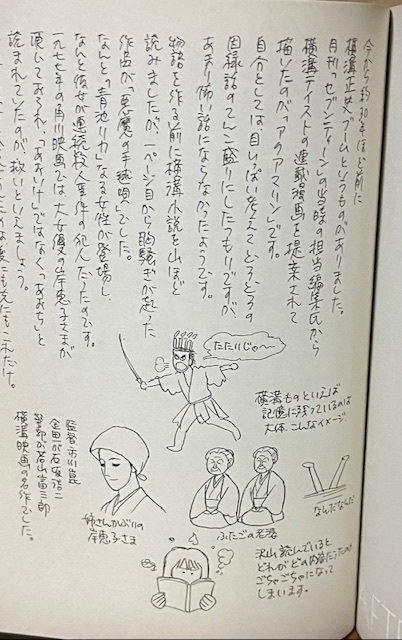 今から約30年ほど前に
横溝正史ブームというものがありました。
月刊「セブンティーン」の当時の担当編集氏から
横溝テイストの連載漫画を提案されて
描いたのが「アのアマリン」です。
自分としては目いっぱい考えてどろどろの
因縁話のてんこ盛りにしたつもりですが、
あまり怖い話にならなかったようです。
物語を作る前に横溝小説を山ほど
読みましたが、一ページ目から胸騒ぎが起った
作品が「悪魔の手毬唄」でした。
なんと「青池リカ」なる女性が登場し、
なんと彼女が連続殺人事件の犯人だったのです。
一九七七年の角川映画では大女優の岸恵子さまが
演じておられ、「あおいけ」ではなく「あおち」と
読まれていたのが救いといえましょう。
たたりじゃ〜
横溝ものといえば
記憶に残っているのは
大体こんなイメージ
なんだなんだ
ふたごの老婆
姉さんかぶりの
岸恵子さま
監督市川崑
金田一が石坂浩二
警部が若山富三郎
横溝映画の名作でした。
沢山読んでいると
どれがどの内容だったのか
ごちゃごちゃになって
しまいます。